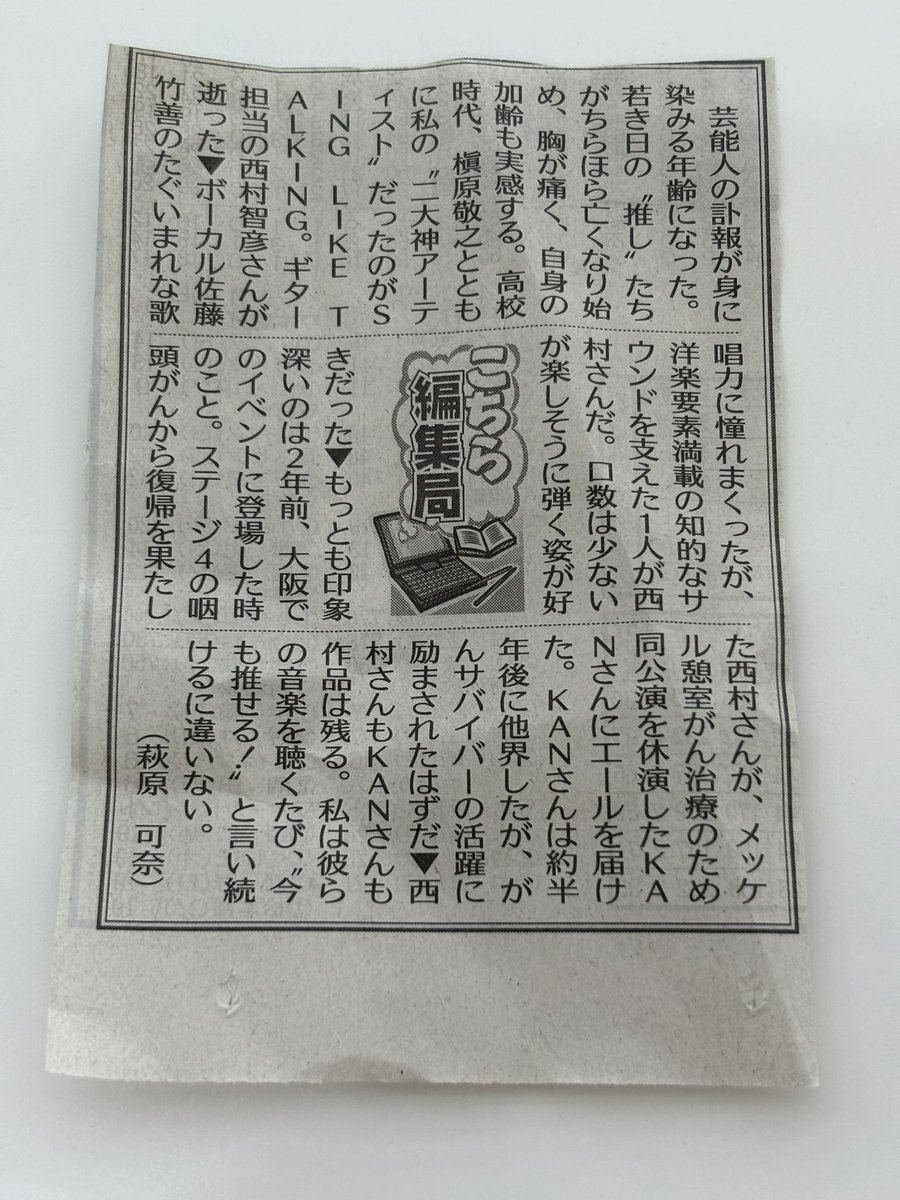 こちら
編集局
芸能人の訃報が身に
染みる年齢になった。
若き日の〝推し〟たち
がちらほら亡くなり始
め、胸が痛く、自身の
加齢も実感する。高校
時代、槇原敬之ととも
に私の〝二大神アーテ
ィスト〟だったのがS
ING LIKE T
ALKING。ギター
担当の西村智彦さんが
逝った▼ボーカル佐藤
竹善のたぐいまれな歌
唱力に憧れまくったが、
洋楽要素満載の知的なサ
ウンドを支えた1人が西
村さんだ。口数は少ない
が楽しそうに弾く姿が好
きだった▼もっとも印象
深いのは2年前、大阪で
のイベントに登場した時
のこと。ステージ4の咽
頭がんから復帰を果たし
た西村さんが、メッケ
ル憩室がん治療のため
同公演を休演したKA
Nさんにエールを届け
た。KANさんは約半
年後に他界したが、が
んサバイバーの活躍に
励まされたはずだ▼西
村さんもKANさんも
作品は残る。私は彼ら
の音楽を聴くたび、〝今
も推せる!〟と言い続
けるに違いない。
(萩原 可奈)